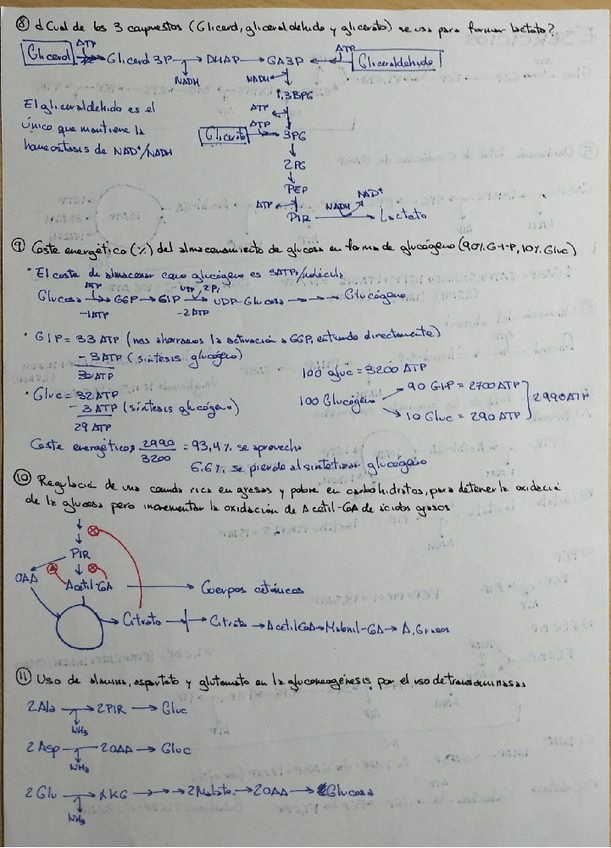 ⑧ ¿Cual de los 3 compuestos (Glicerol, gliceraldehido y glicerato) se usa para formar lactato?
Glicerol ATP Glicerol 3P → DHAP → GA3P ← ATP Gliceraldehido
NADH NADH
1,3BPG
El gliceraldehido es el ATP
único que mantiene la Glicerato ATP 3PG
homeostasis de NAD⁺/NADH 2PG
PEP
ATP NADH NAD⁺
PIR → Lactato
⑨ Coste energético (%) del almacenamiento de glucosa en forma de glucógeno (90% G-1-P, 10% Gluc)
• El coste de almacenar como glucógeno es 3ATP/molécula
ATP UTP 2Pi
Glucosa → G6P → G1P → UDP-Glucosa → → → Glucógeno
-1ATP -2ATP
• G1P = 33 ATP (nos ahorramos la activación a G6P, entrando directamente)
- 3ATP (síntesis glucógeno)
30 ATP
100 gluc = 3200 ATP
• Gluc = 32 ATP
- 3 ATP (síntesis glucógeno)
29 ATP
100 Glucógeno 90 G1P = 2700 ATP
10 Gluc = 290 ATP
2990 ATP
Coste energético, 2990/3200 = 93,4% se aprovecha
6.6% se pierde al sintetizar glucógeno
⑩ Regulación de una comida rica en grasas y pobre en carbohidratos, para detener la oxidación
de la glucosa pero incrementar la oxidación de Acetil-CoA de ácidos grasos
PIR
OAA Acetil-CoA → Cuerpos cetónicos
Citrato → Citrato → Acetil-CoA → Malonil-CoA → A. Grasos
⑪ Uso de alanina, aspartato y glutamato en la gluconeogénesis, por el uso de transaminasas
2 Ala → 2PIR → Gluc
NH₃
2 Asp → 2OAA → Gluc
NH₃
2 Glu → αKG → → → 2Malato → 2OAA → Glucosa
NH₃